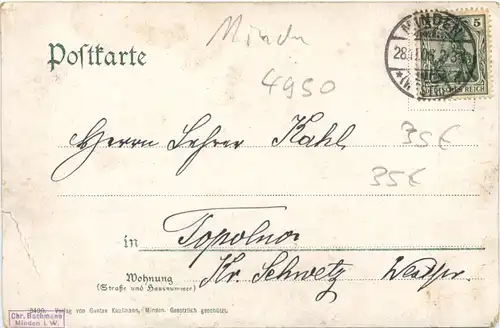 Postkarte
Minden
4950
MINDEN
5
DEUTSCHES REICH
Herrn Lehrer Kahl
35 €
35 €
in Topolno
Wohnung
(Straße und Hausnummer)
Kr. Schwetz Westpr.
2490. Verlag von Gustav Kaufmann, Minden. Gesetzlich geschützt.
Chr. Bathmann
Minden i. W.